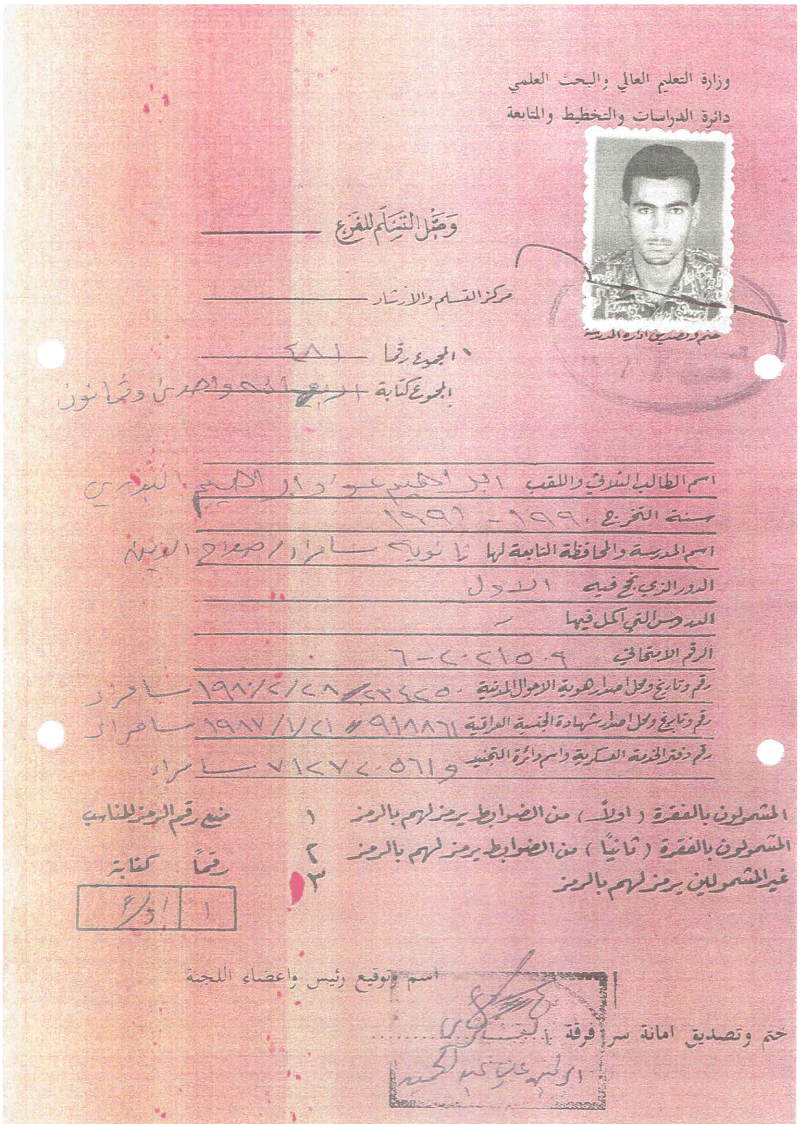 وزارة التعليم العالي والبحث العلمي
دائرة الدراسات والتخطيط والمتابعة
وصل التسلم للفرع
مركز التسلم والارشاد
ختم وتصديق ادارة المدرسة
المجموع رقما ٤٨١
المجموع كتابة اربعمائة واحدى وثمانون
اسم الطالب الثلاثي واللقب ابراهيم عواد ابراهيم البدري
سنة التخرج ١٩٩٠ - ١٩٩١
اسم المدرسة والمحافظة التابعة لها ثانوية سامراء / صلاح الدين
الدور الذي نجح فيه الاول
الدروس التي اكمل فيها -
الرقم الامتحاني ٢٠٢١٥٠٩-٦
رقم وتاريخ ومحل اصدار هوية الاحوال المدنية ٢٣٤٢٥٠ // ١٩٨٠/٢/٢٨ سامراء
رقم وتاريخ ومحل اصدار شهادة الجنسية العراقية ٩١٨٨٦١ // ١٩٨٧/١/٢١ سامراء
رقم دفتر الخدمة العسكرية واسم دائرة التجنيد سامراء
المشمولون بالفقرة ( اولاً ) من الضوابط يرمز لهم بالرمز ١
المشمولون بالفقرة ( ثانيًا ) من الضوابط يرمز لهم بالرمز ٢
غير المشمولين يرمز لهم بالرمز ٣
رقم الرمز المناسب
رقماً كتابة
١
اسم وتوقيع رئيس واعضاء اللجنة
ختم وتصديق امانة سر فرقة